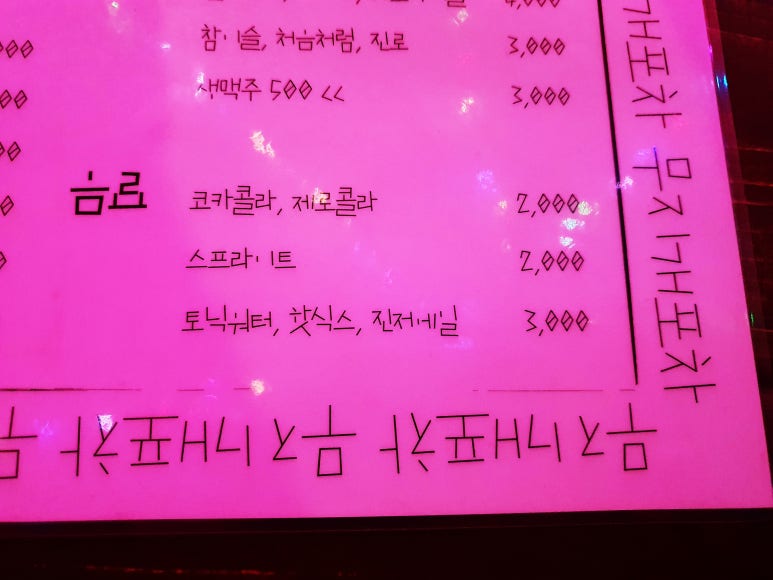 4,000
참이슬, 처음처럼, 진로 3,000
생맥주 500 << 3,000
음료 코카콜라, 제로콜라 2,000
스프라이트 2,000
토닉워터, 핫식스, 진저에일 3,000
개포차 무지개포차
무지개포차 무지개포차 무